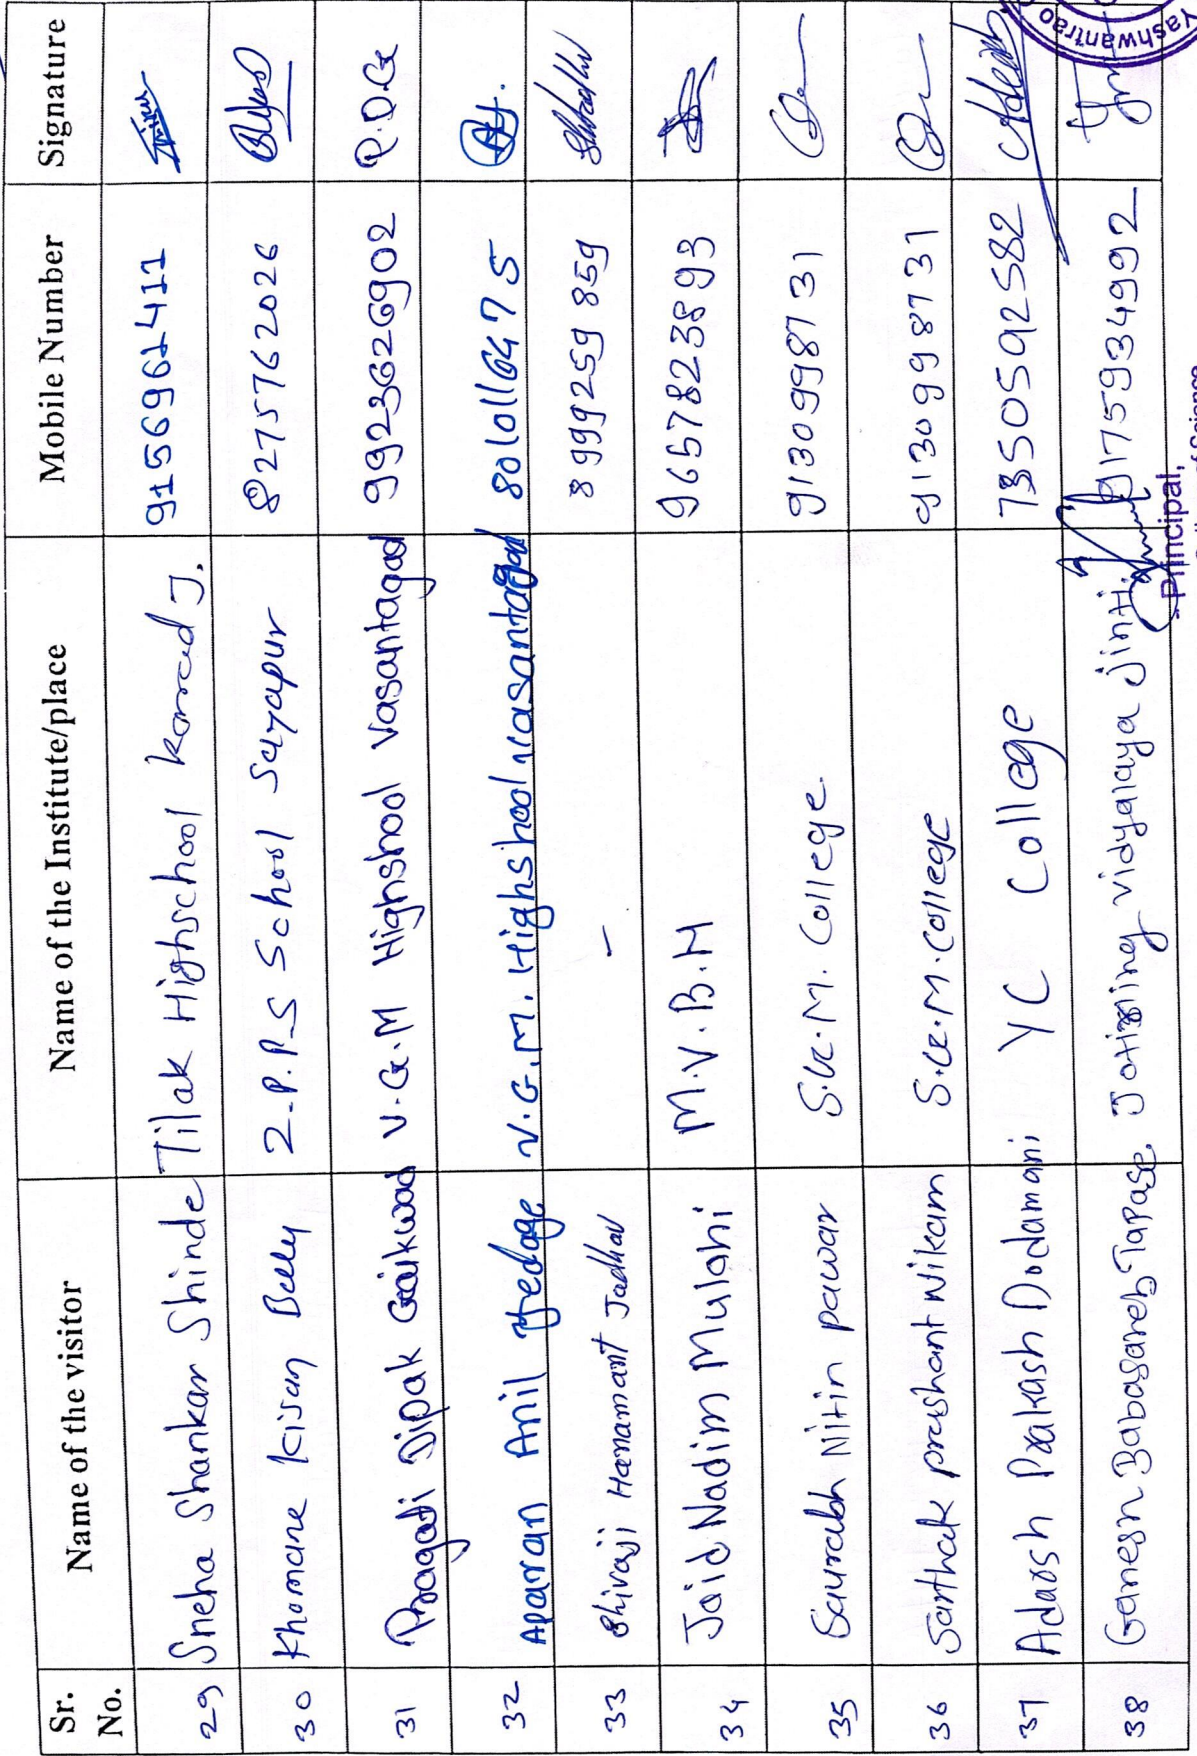 Sr. No. Name of the visitor Name of the Institute/place Mobile Number Signature
29 Sneha Shankar Shinde Tilak Highschool Karad J. 9156961411
30 Khomane Kisan 2.P.P.S School Sayapur 8275762026
31 Pragati Dipak Gaikwad V.G.M Highshool Vasantagad 9923626902 P.D.G
32 Aparan Anil V.G.M. Highshool vasantagad 8010116475
33 Shivaji Hanamant Jadhav - 8999259859
34 Jaid Nadim Mulani M.V.B.H 9657823893
35 Saurabh Nitin pawar S.G.M. College 9130998731
36 Sarthak prashant Nikam S.G.M. College 9130998731
37 Adarsh Prakash Dodamani YC College 7350592582
38 Ganesh Babasaheb Tapase. Jotirling vidyalaya jinti. 9175934992
Yashwantrao
Principal,
of Science